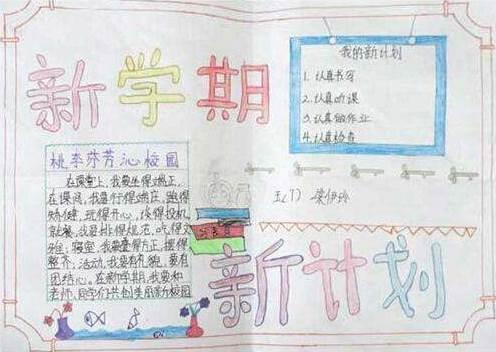 新学期
我的新计划
1.认真书写
2.认真听课
3.认真做作业
4.认真检查
桃李芬芳沁校园
在课堂上,我要坐得端正,
在课间,我要行得端庄,跑得
矫健,玩得开心,谈得投机,
就餐,我要排得规范,吃得文
雅;寝室,我要叠得方正,摆得
整齐;活动,我要有礼貌,要有
团结心。在新学期,我要和
老师、同学们共创美丽新校园
五(7) 梁伊玲
新计划